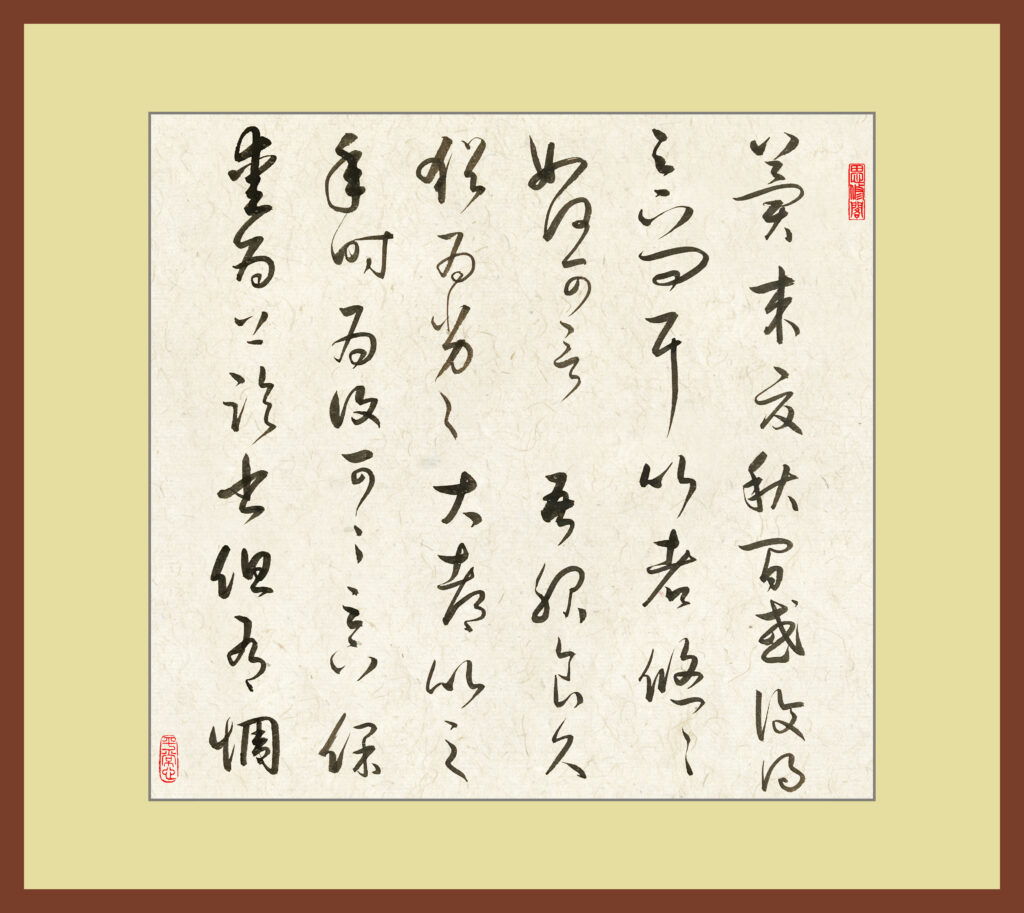 思修閣
冀來夏秋間或復得
足下問耳比者悠〻
如何可言 吾服食久
猶為劣〻大都比之
年時為復可〻足下保
愛為上臨書但有惆
平常心